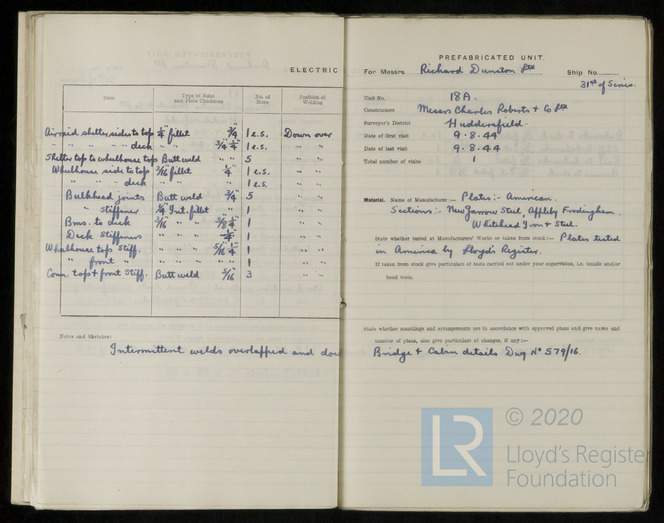 ELECTRIC
Item Type of Joint and Plate Thickness No. of Runs Position of Welding
Airraid shelter, sides to top 1/4 fillet " 3/4 1 e.s. Down over
" " " " deck " " 3/4 1/4 1 e.s. " "
Shelter top to wheelhouse top Butt weld " 5 " "
Wheelhouse side to top 3/16 fillet 1/4 1 e.s. " "
" " " deck " " " 1 e.s. " "
Bulkhead joints Butt weld 3/4 5 " "
" stiffener 1/4 Int. fillet " 1 " "
Bms. to deck 3/16 " " 3/8 1/4 1 " "
Deck Stiffeners " " " 1/4 1 " "
Wheelhouse top Stiff. " " " 5/16 1/4 1 " "
" front " " " " " 1 " "
Conn. top & front Stiff. Butt weld 5/16 3 " "
Notes and Sketches:
Intermittent welds overlapped and
PREFABRICATED UNIT.
For Messrs. Richard Dunston Ltd Ship No.
31st of Series.
Unit No. 18A.
Constructors Messrs Charles Roberts & Co Ltd
Surveyor's District Huddersfield
Date of first visit 9.8.44
Date of last visit 9.8.44
Total number of visits 1
Material. Name of Manufacturer:— Plates:- American.
Sections:- New Jarrow Steel, Appleby Frodingham.
Whitehead Iron & Steel.
State whether tested at Manufacturers' Works or taken from stock:— Plates tested
in America by Lloyd's Register.
If taken from stock give particulars of tests carried out under your supervision, i.e. tensile and/or
bend tests.
State whether scantlings and arrangements are in accordance with approved plans and give name and
number of plans, also give particulars of changes, if any:—
Bridge & Cabin details Dwg No 579/16.
© 2020
LR
Lloyd's Register
Foundation